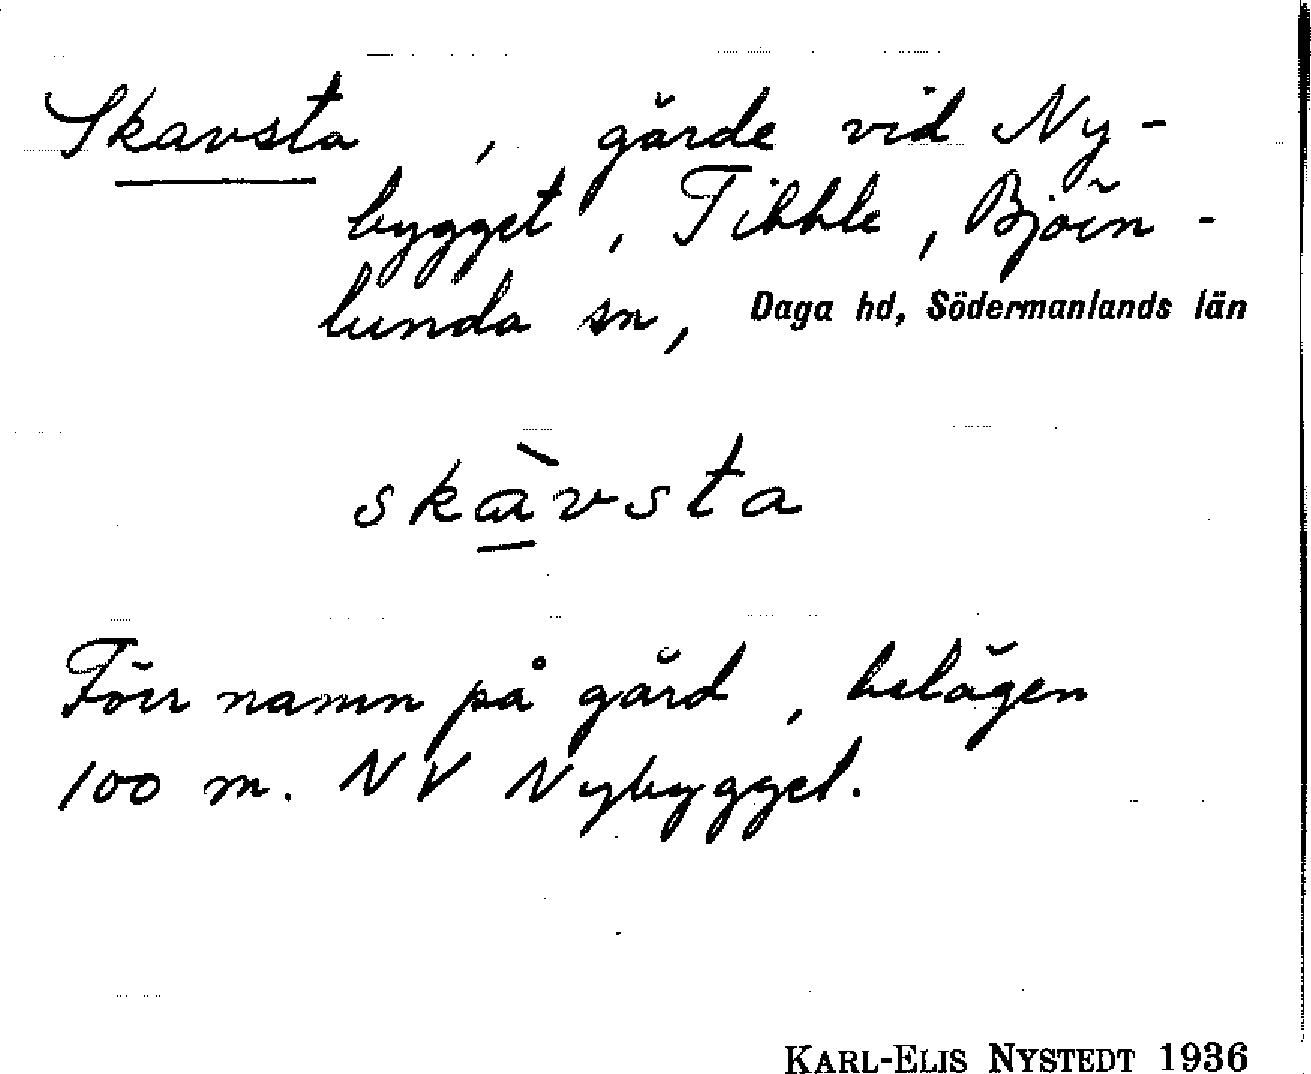 Skavsta, gärde vid Ny-
bygget, Tibble, Björn-
lunda sn, Daga hd, Södermanlands län
skàvsta
Förr namn på gärd, belägen
100 m. NV Nybygget.
KARL-ELIS NYSTEDT 1936